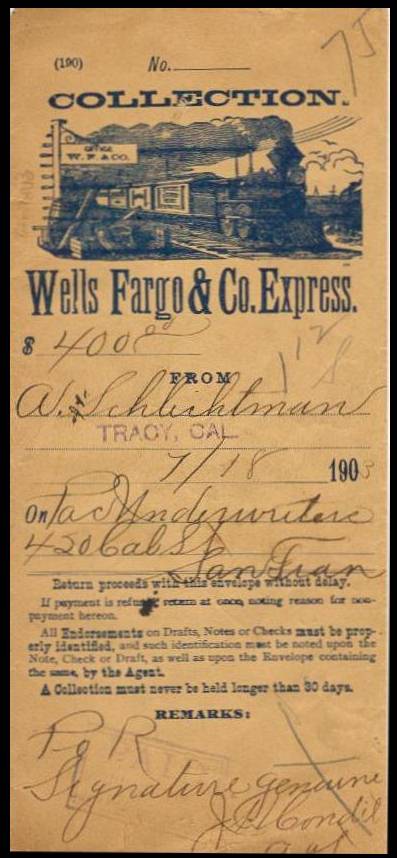 75
(190) No.
COLLECTION.
OFFICE
W. F. & CO.
Wells Fargo & Co. Express.
$ 400 00
FROM
A. Schlichtman
TRACY, CAL.
7/18 1903
On Pac Underwriters
420 Cal St
San Fran
Return proceeds with this envelope without delay.
If payment is refused return at once, noting reason for non-
payment hereon.
All Endorsements on Drafts, Notes or Checks must be prop-
erly identified, and such identification must be noted upon the
Note, Check or Draft, as well as upon the Envelope containing
the same, by the Agent.
A Collection must never be held longer than 30 days.
REMARKS:
P o R
Signature genuine